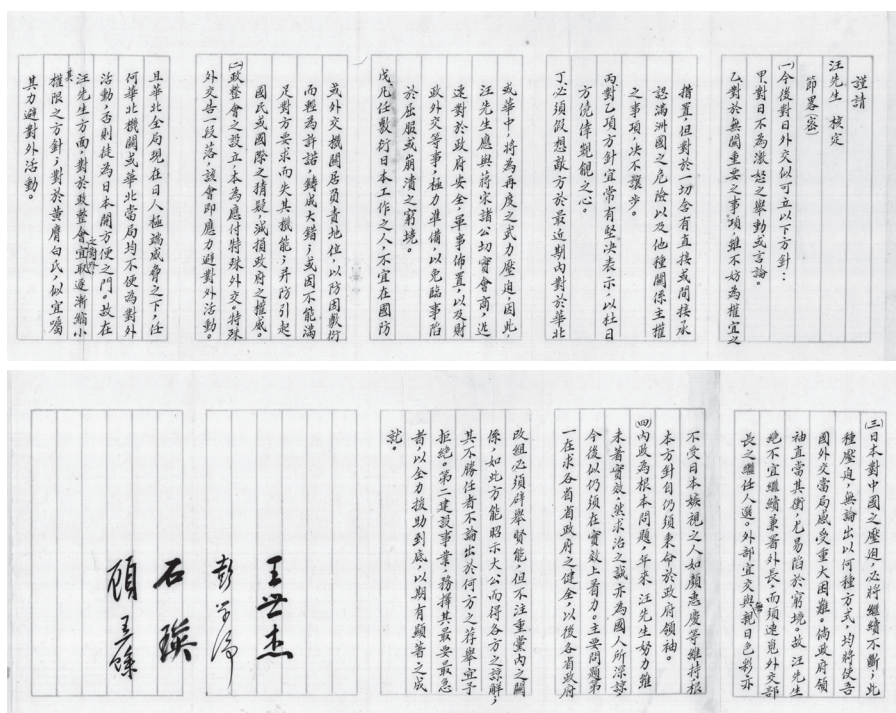 謹請
汪先生 核定
節畧(密)
(一)今後對日外交似可立以下方針：
甲對日不為激怒之舉動或言論。
乙對於無關重要之事項,雖不妨為權宜之
措置,但對於一切含有直接或間接承
認滿洲國之危險以及他種關係主權
之事項,決不讓步。
丙對乙項方針宜常有堅決表示,以杜日
方僥倖覬覦之心。
丁必須假想敵方於最近期內對於華北
或華中,將為再度之武力壓迫,因此,
汪先生應與蔣宋諸公切實會商,迅
速對於政府安全,軍事佈置,以及財
政外交等事,極力準備,以免臨事陷
於屈服或崩潰之窮境。
戊凡任敷衍日本工作之人,不宜在國防
或外交機關居負責地位,以防因敷衍
而輕為許諾,鑄成大錯;或因不能滿
足對方要求而失其機能;并防引起
國民或國際之猜疑,減損政府之權威。
(二)政整會之設立,本為應付特殊外交。特殊
外交告一段落,該會即應力避對外活動。
且華北全局現在日人極端威脅之下,任
何華北機關或華北當局均不便為對外
活動,否則徒為日本開方便之門。故在
汪先生方面,對於政整會之對外宜取逐漸縮小
其權限之方針;對於黃膺白氏,似宜囑
其力避對外活動。
(三)日本對中國之壓迫,必將繼續不斷;此
種壓迫,無論出以何種方式,均將使吾
國外交當局感受重大困難。倘政府領
袖直當其衝,尤易陷於窮境。故汪先生
絕不宜繼續兼署外長,而須速覓外交部
長之繼任人選。外部宜交與無親日色彩亦
不受日本嫉視之人如顏惠慶等維持,根
本方針自仍須秉命於政府領袖。
(四)內政為根本問題,年來汪先生努力雖
未著實效,然求治之誠亦為國人所深諒。
今後似仍須在實效上着力。主要問題第
一在求各省省政府之健全,以後各省政府
改組必須辟舉賢能,但不注重黨內之關
係,如此方能昭示大公而得各方之諒解,
其不勝任者不論出於何方之荐舉宜予
拒絕。第二建設事業,務擇其最要最急
者,以全力援助到底,以期有顯著之成
就。
王世杰
彭學沛
石瑛
顧孟餘